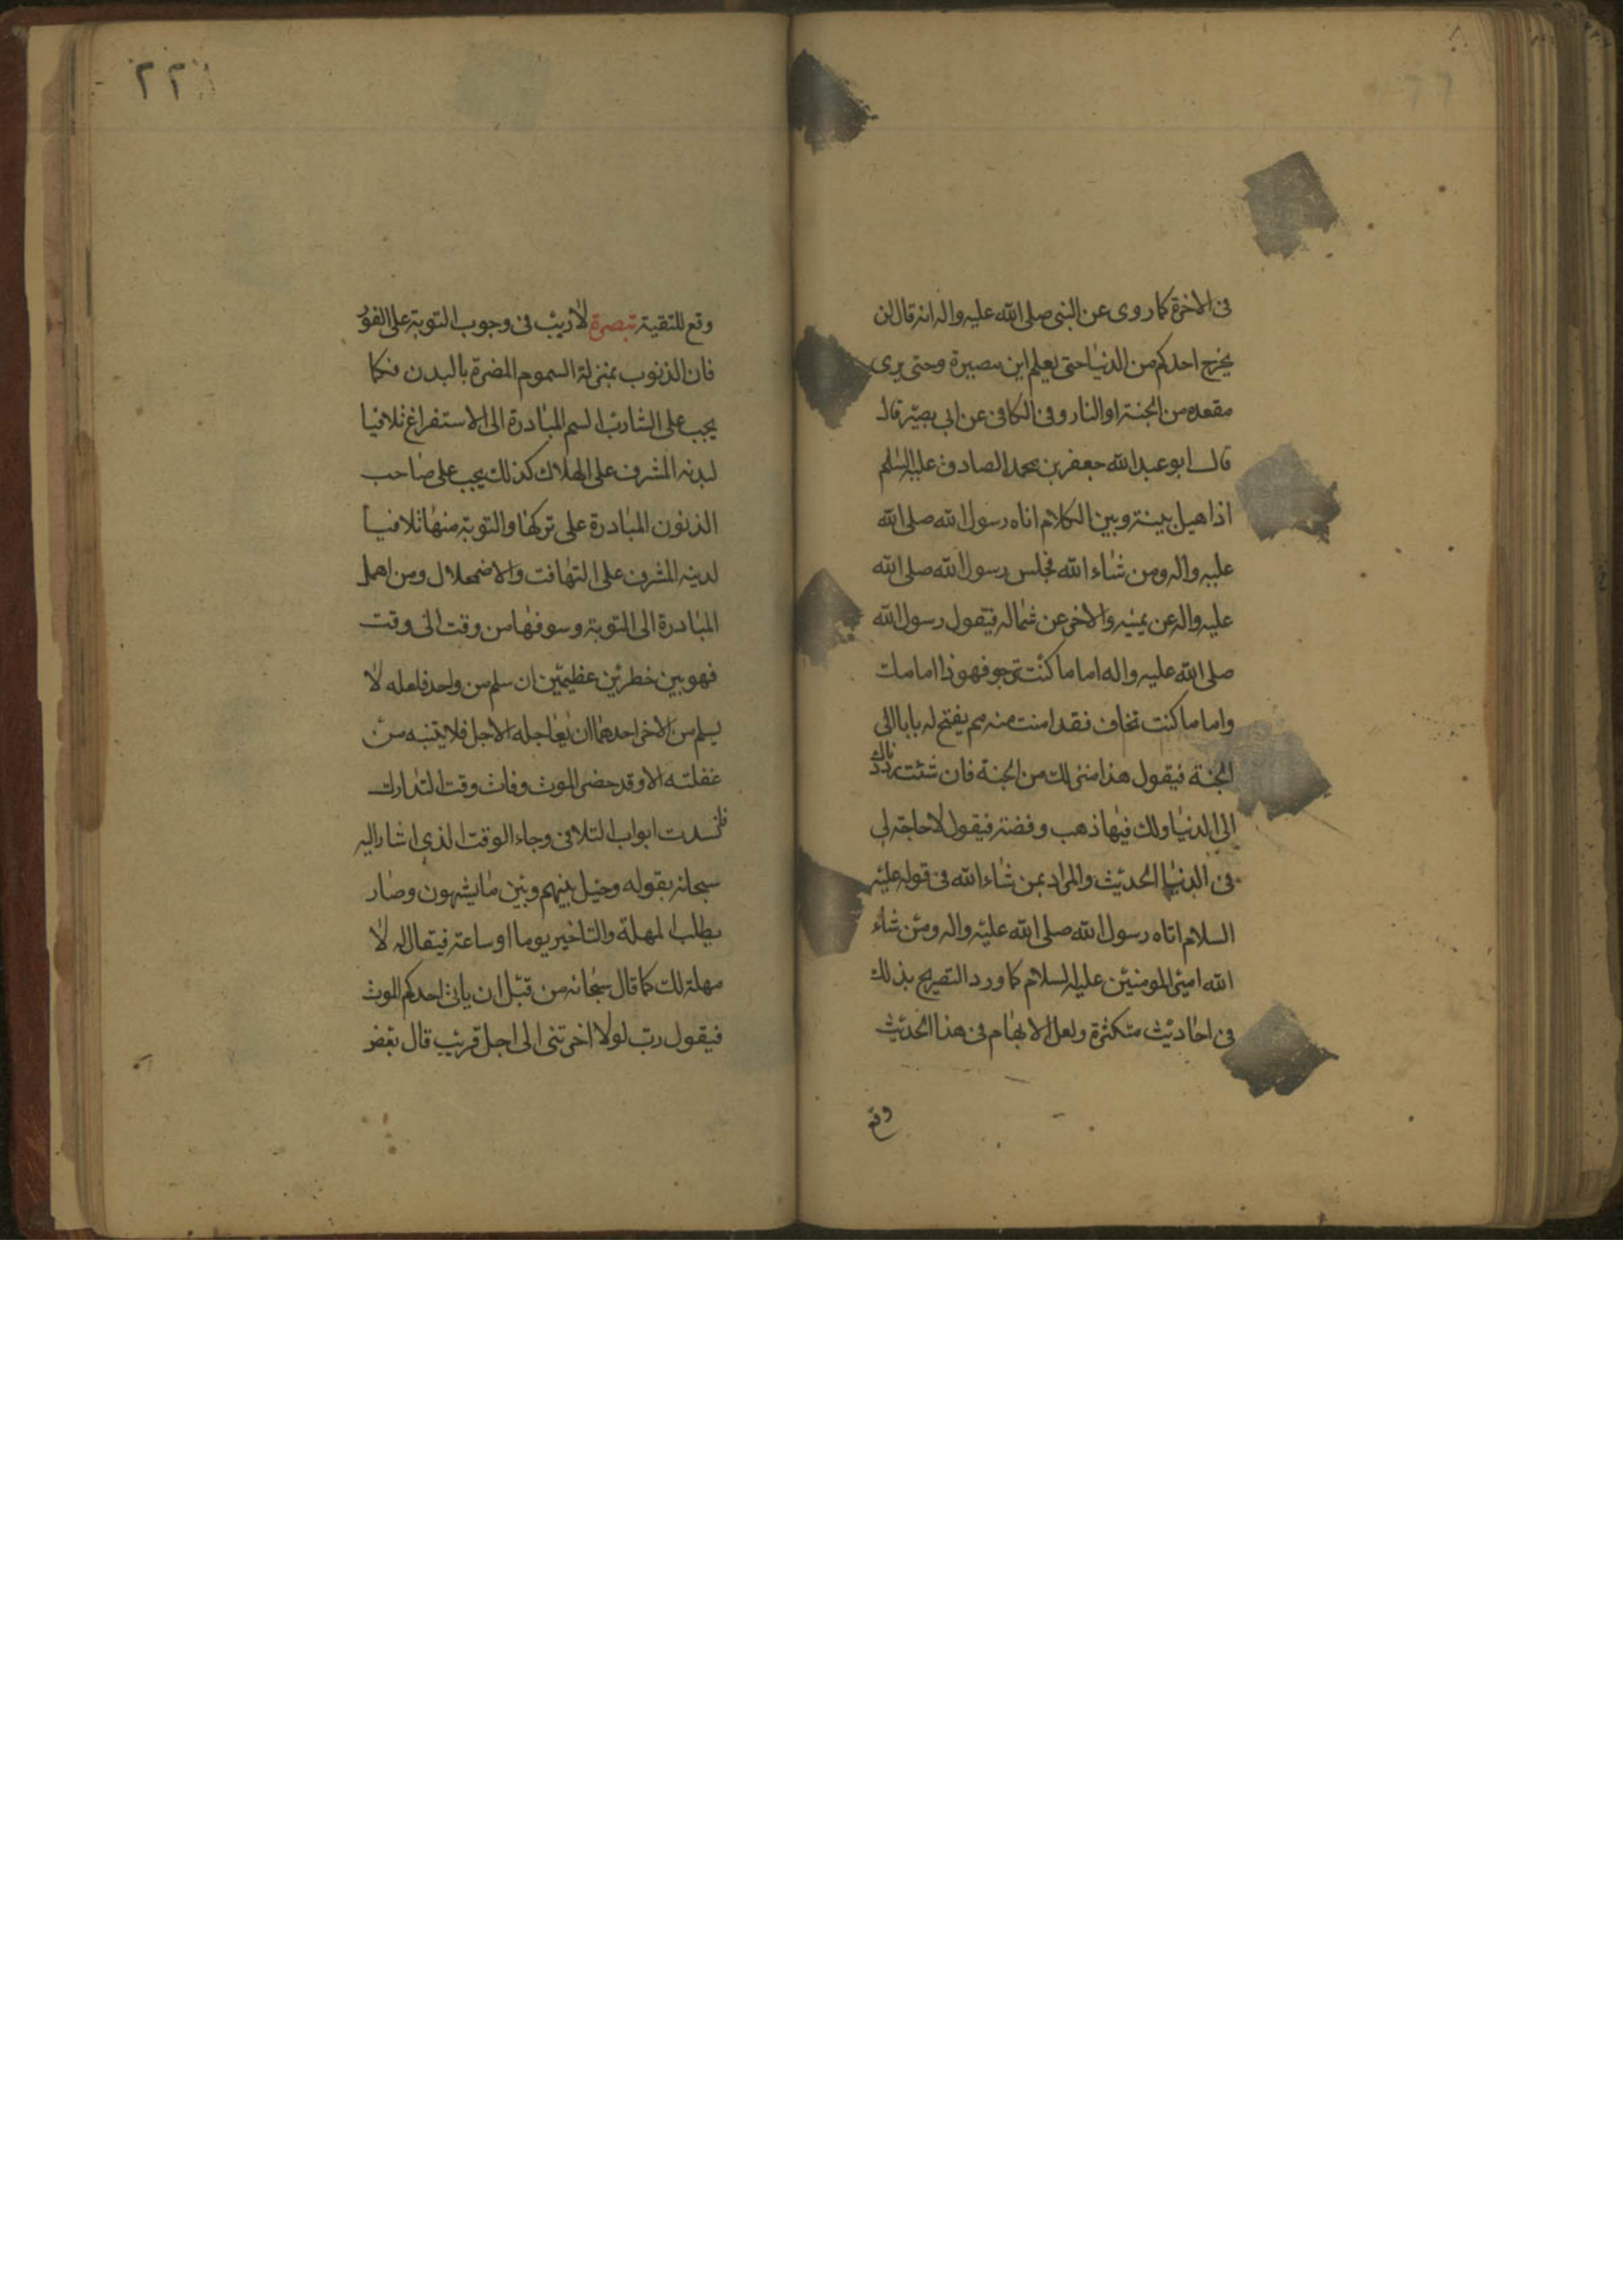 فى الاخرة كما روى عن النبى صلى الله عليه واله انه قال لن
يخرج احدكم من الدنيا حتى يعلم اين مصيره وحتى يرى
مقعده من الجنة او النار وفى الكافى عن ابى بصير قال
قال ابو عبد الله جعفر بن محمد الصادق عليه السلم
اذا هيل بينه وبين الكلام اتاه رسول الله صلى الله
عليه واله ومن شاء الله فجلس رسول الله صلى الله
عليه واله عن يمينه والاخر عن شماله فيقول رسول الله
صلى الله عليه واله اما ما كنت ترجو فهو ذا امامك
واما ما كنت تخاف فقد امنت منه ثم يفتح له بابا الى
الجنة فيقول هذا منزلك من الجنة فان شئت رددناك
الى الدنيا ولك فيها ذهب وفضة فيقول لا حاجة لى
فى الدنيا الحديث والمراد بمن شاء الله فى قوله عليه
السلام اتاه رسول الله صلى الله عليه واله ومن شاء
الله امير المومنين عليه السلام كما ورد التصريح بذلك
فى احاديث متكثرة ولعل الابهام فى هذا الحديث
وقع
٢٢
وقع للتقية تبصرة لا ريب فى وجوب التوبة على الفور
فان الذنوب بمنزلة السموم المضرة بالبدن فكما
يجب على الشارب السم المبادرة الى الاستفراغ تلافيا
لبدنه المشرف على الهلاك كذلك يجب على صاحب
الذنوب المبادرة على تركها والتوبة منها تلافيا
لدينه المشرف على التهافت والاضمحلال ومن اهمل
المبادرة الى التوبة وسوفها من وقت الى وقت
فهو بين خطرين عظيمين ان سلم من واحد فلعله لا
يسلم من الاخر احدهما ان يعاجله الاجل فلا يتنبه من
غفلته الا وقد حضر الموت وفات وقت التدارك
فانسدت ابواب التلافى وجاء الوقت الذى اشار اليه
سبحانه بقوله وحيل بينهم وبين ما يشتهون وصار
يطلب المهلة والتاخير يوما او ساعة فيقال له لا
مهلة لك كما قال سبحانه من قبل ان ياتى احدكم الموت
فيقول رب لولا اخرتنى الى اجل قريب قال بعض